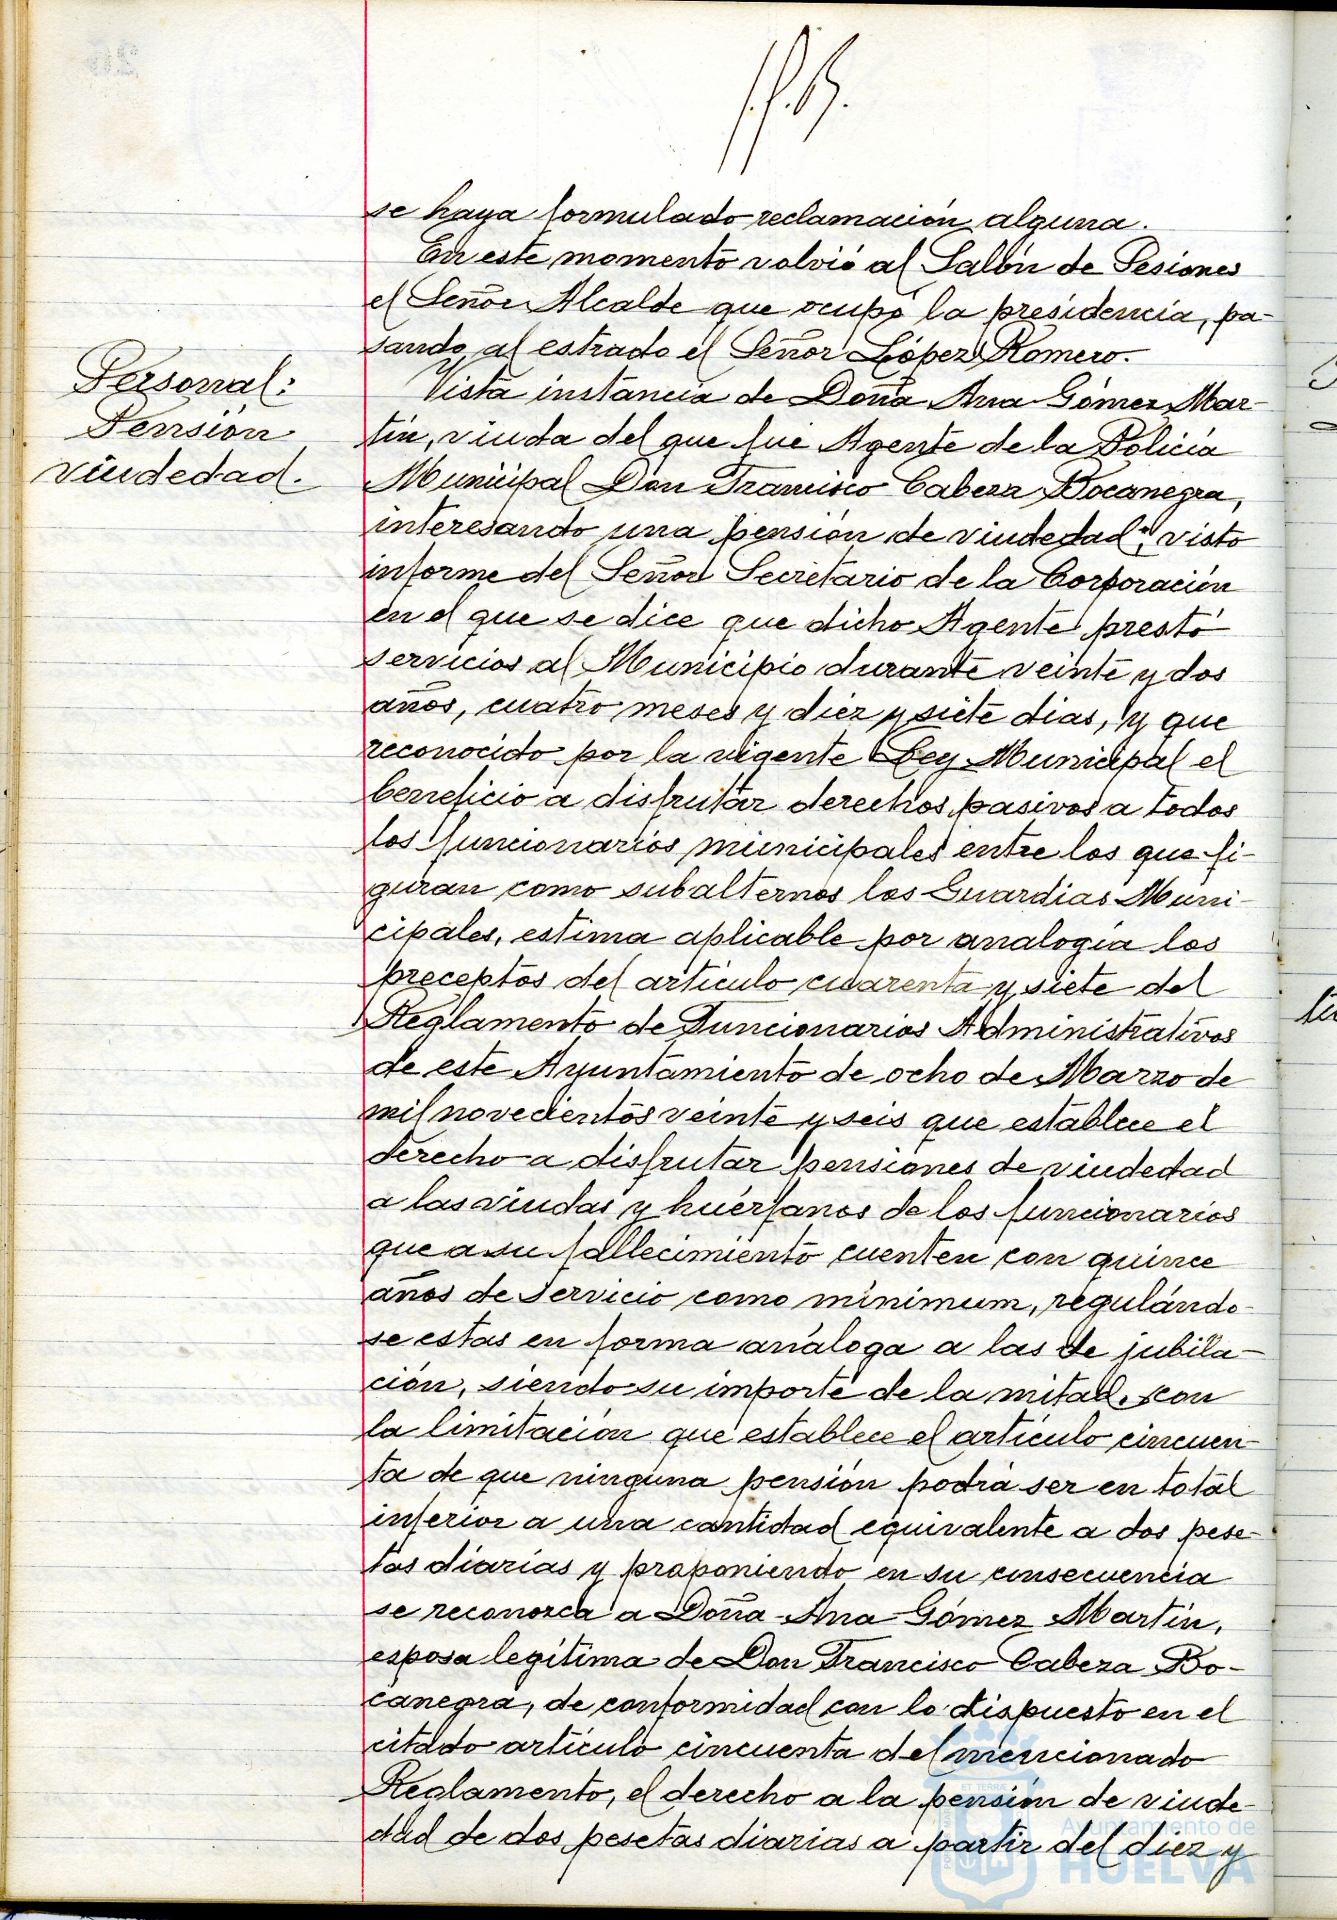 se haya formulado reclamación alguna.
En este momento volvió al Salón de Sesiones
el Señor Alcalde que ocupó la presidencia, pa-
sando al estrado el Señor López Romero.
Personal:
Pensión
viudedad.
Vista instancia de Doña Ana Gómez Mar-
tín, viuda del que fué Agente de la Policía
Municipal Don Francisco Cabeza Bocanegra,
interesando una pensión de viudedad; visto
informe del Señor Secretario de la Corporación
en el que se dice que dicho Agente prestó
servicios al Municipio durante veinte y dos
años, cuatro meses y diez y siete dias, y que
reconocido por la vigente Ley Municipal el
beneficio a disfrutar derechos pasivos a todos
los funcionarios municipales entre los que fi-
guran como subalternos los Guardias Muni-
cipales, estima aplicable por analogía los
preceptos del artículo cuarenta y siete del
Reglamento de Funcionarios Administrativos
de este Ayuntamiento de ocho de Marzo de
mil novecientos veinte y seis que establece el
derecho a disfrutar pensiones de viudedad
a las viudas y huérfanos de los funcionarios
que a su fallecimiento cuenten con quince
años de servicio como mínimum, regulándo-
se estas en forma análoga a las de jubila-
ción, siendo su importe de la mitad, con
la limitación que establece el artículo cincuen-
ta de que ninguna pensión podrá ser en total
inferior a una cantidad equivalente a dos pese-
tas diarias y proponiendo en su consecuencia
se reconozca a Doña Ana Gómez Martín,
esposa legítima de Don Francisco Cabeza Bo-
canegra, de conformidad con lo dispuesto en el
citado artículo cincuenta del mencionado
Reglamento, el derecho a la pensión de viude-
dad de dos pesetas diarias a partir del diez y
Ayuntamiento de
HUELVA